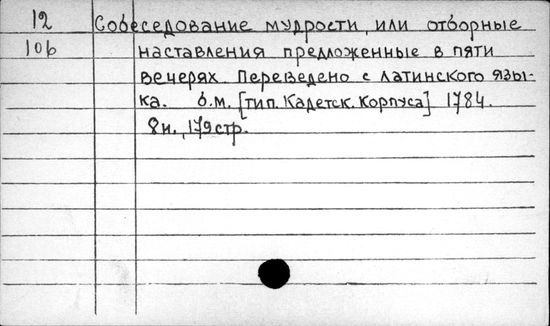 12 Собеседование мудрости, или отборные
10б наставления предложенные в пяти
вечерях. Переведено с латинского язы-
ка. б.м. [тип. Кадетск. Корпуса] 1784.
8н., 179 стр.